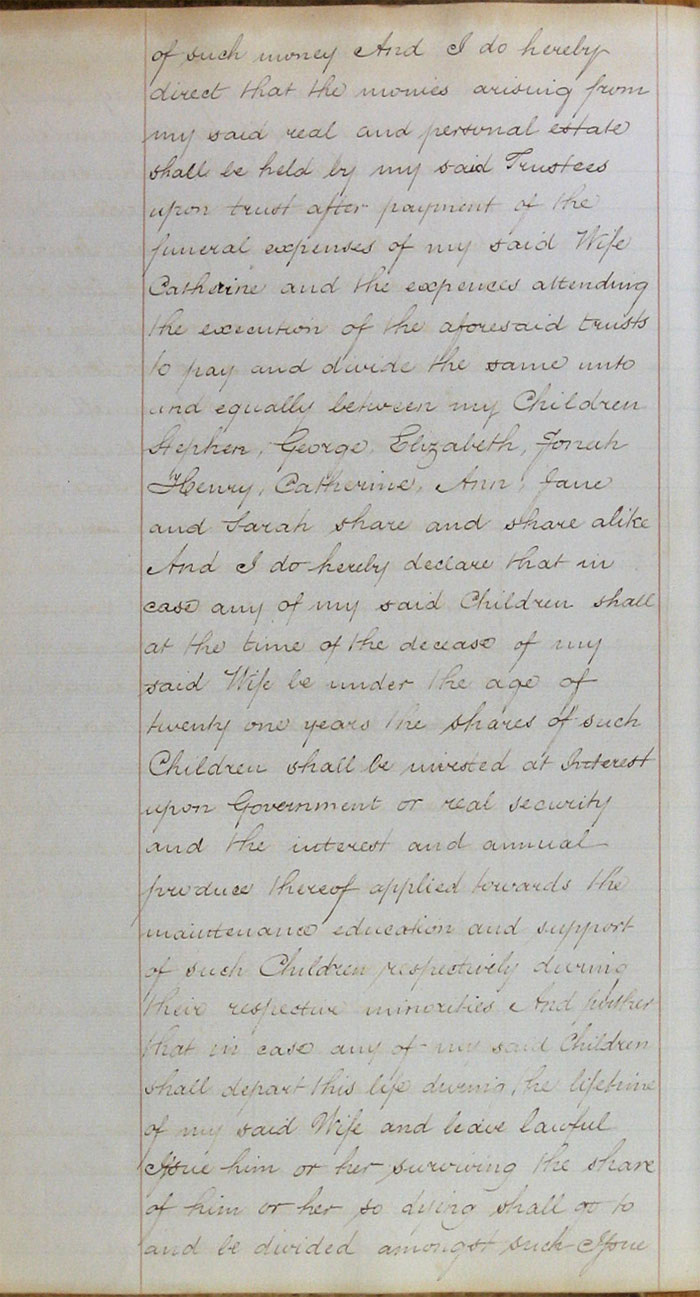 of such money And I do hereby
direct that the monies arising from
my said real and personal estate
shall be held by my said Trustees
upon trust after payment of the
funeral expenses of my said Wife
Catherine and the expences attending
the execution of the aforesaid trusts
to pay and divide the same unto
and equally between my Children
Stephen, George, Elizabeth, Jonah
Henry, Catherine, Ann, Jane
and Sarah share and share alike
And I do hereby declare that in
case any of my said Children shall
at the time of the decease of my
said Wife be under the age of
twenty one years the shares of such
Children shall be invested at Interest
upon Government or real security
and the interest and annual
produce thereof applied towards the
maintenance education and support
of such Children respectively during
their respective minorities And further
that in case any of my said Children
shall depart this life during the lifetime
of my said Wife and leave lawful
Issue him or her surviving the share
of him or her so dying shall go to
and be divided amongst such Issue